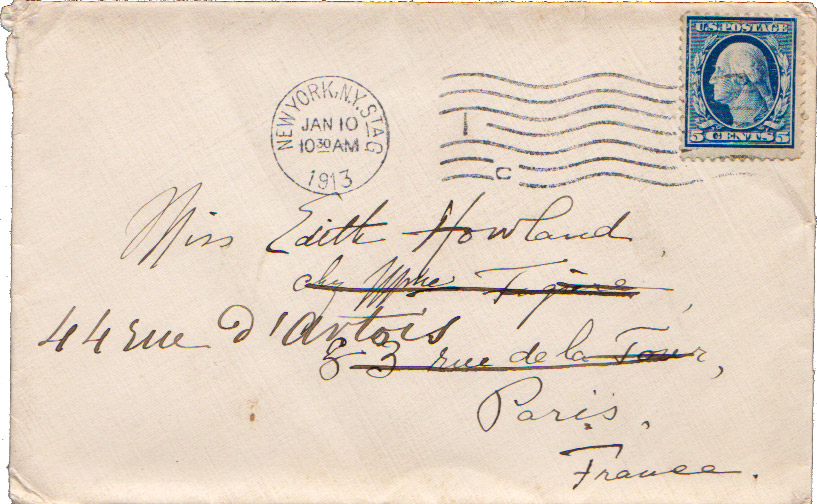 U.S. POSTAGE
5 CENTS 5
NEW YORK, N.Y. STA G
JAN 10
10 30 AM
1913
C
Miss Edith Howland,
chez Mme
44 rue d'Artois
83 rue de la Tour,
Paris.
France.